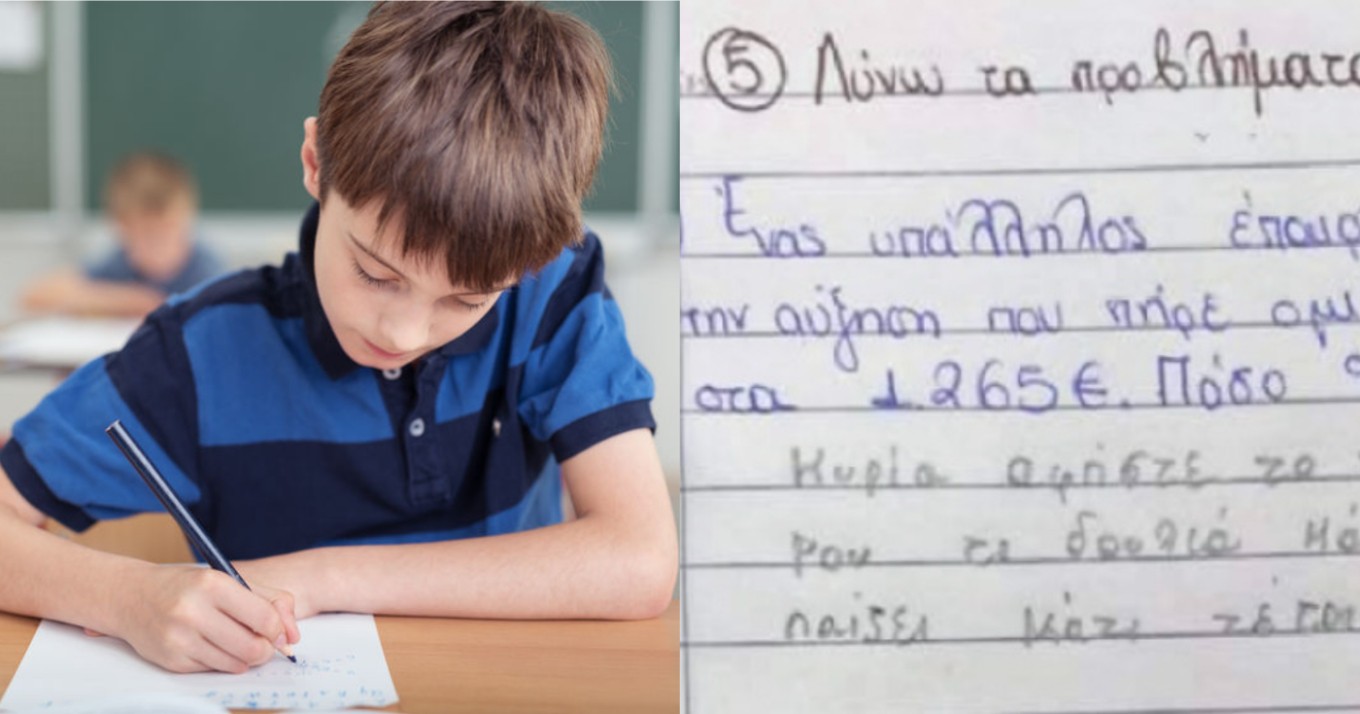 ⑤ Λύνω τα προβλήματα
Ένας υπάλληλος έπαιρ
την αύξηση που πήρε αμ
στα 1.265€. Πόσο
Κυρία αφήστε το
μου τι δουλιά κά
παίζει κάτι τέτοι